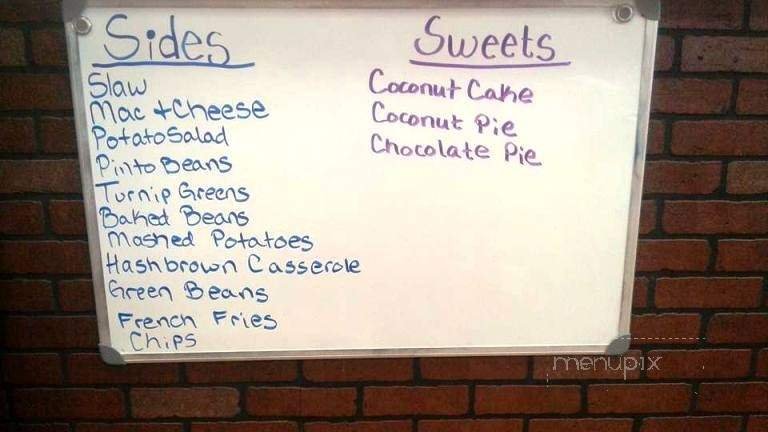 Sides
Slaw
Mac + Cheese
Potato Salad
Pinto Beans
Turnip Greens
Baked Beans
Mashed Potatoes
Hashbrown Casserole
Green Beans
French Fries
Chips
Sweets
Coconut Cake
Coconut Pie
Chocolate Pie
menupix